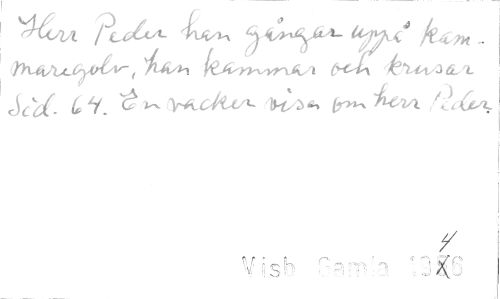 Herr Peder han gångar uppå kam-
maregolv, han kammar och krusar
Sid. 64. En vacker visa om herr Peder.
4
Visb Gamla 1366